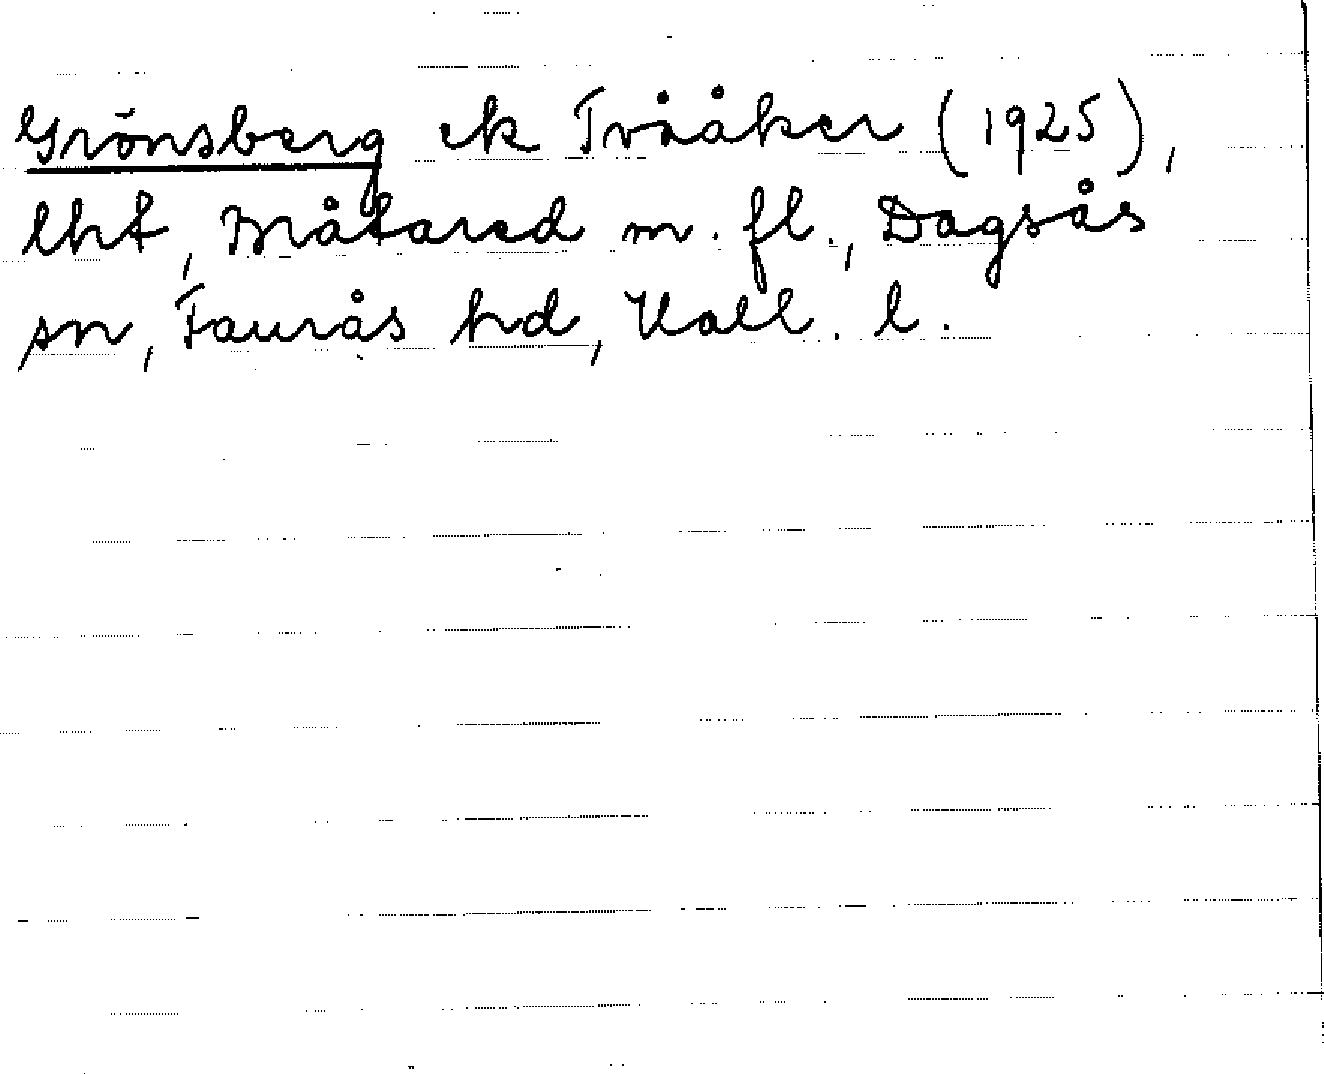 Grönsberg ek Tvååker (1925),
lht, Måtared m. fl., Dagsås
sn, Faurås hd, Hall. l.